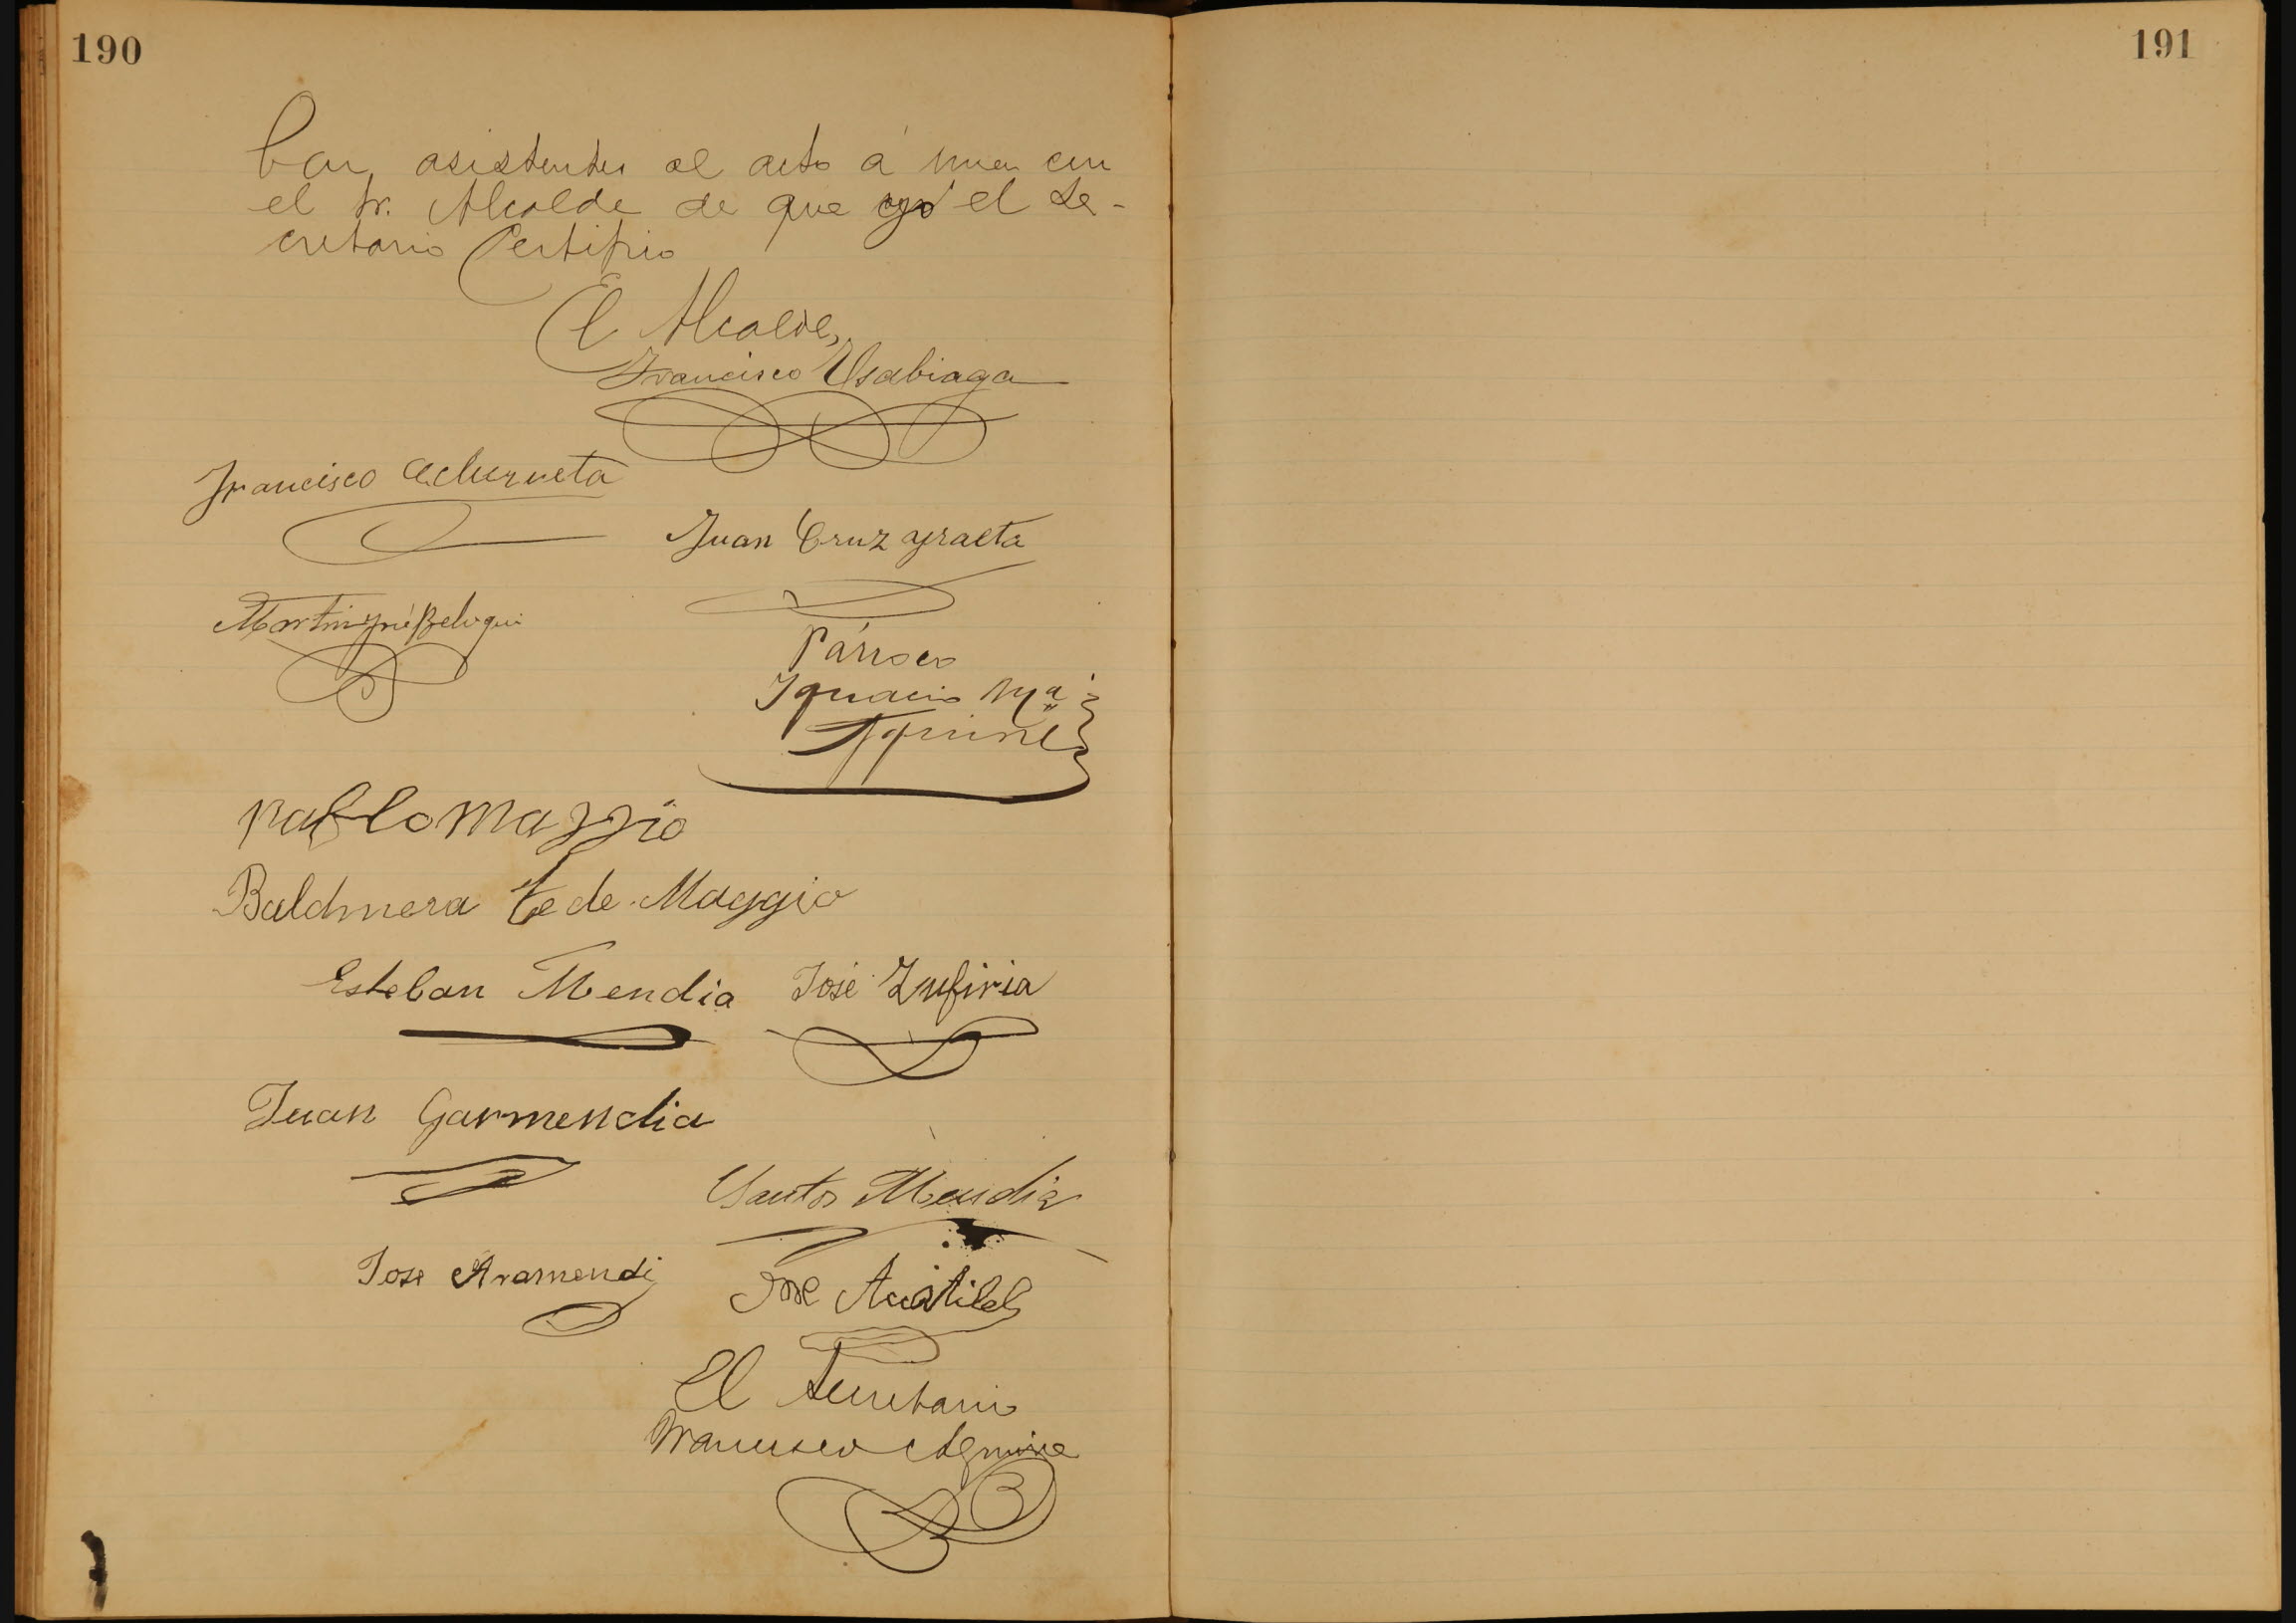 190
191
asistentes al acto á una con
el Sr. Alcalde de que yo el Se-
cretario Certifico
El Alcalde,
Francisco Usabiaga
Francisco Achurueta
Juan Cruz yraeta
Martin José Belogui
Párroco
Ignacio Mª
Aguirre
Pablo Maggio
Baldmera de Maggio
Esteban Mendia José Zufiria
Juan Garmendia
Santos Mendia
Jose Aramendi
José
El Secretario
Francisco Aguirre